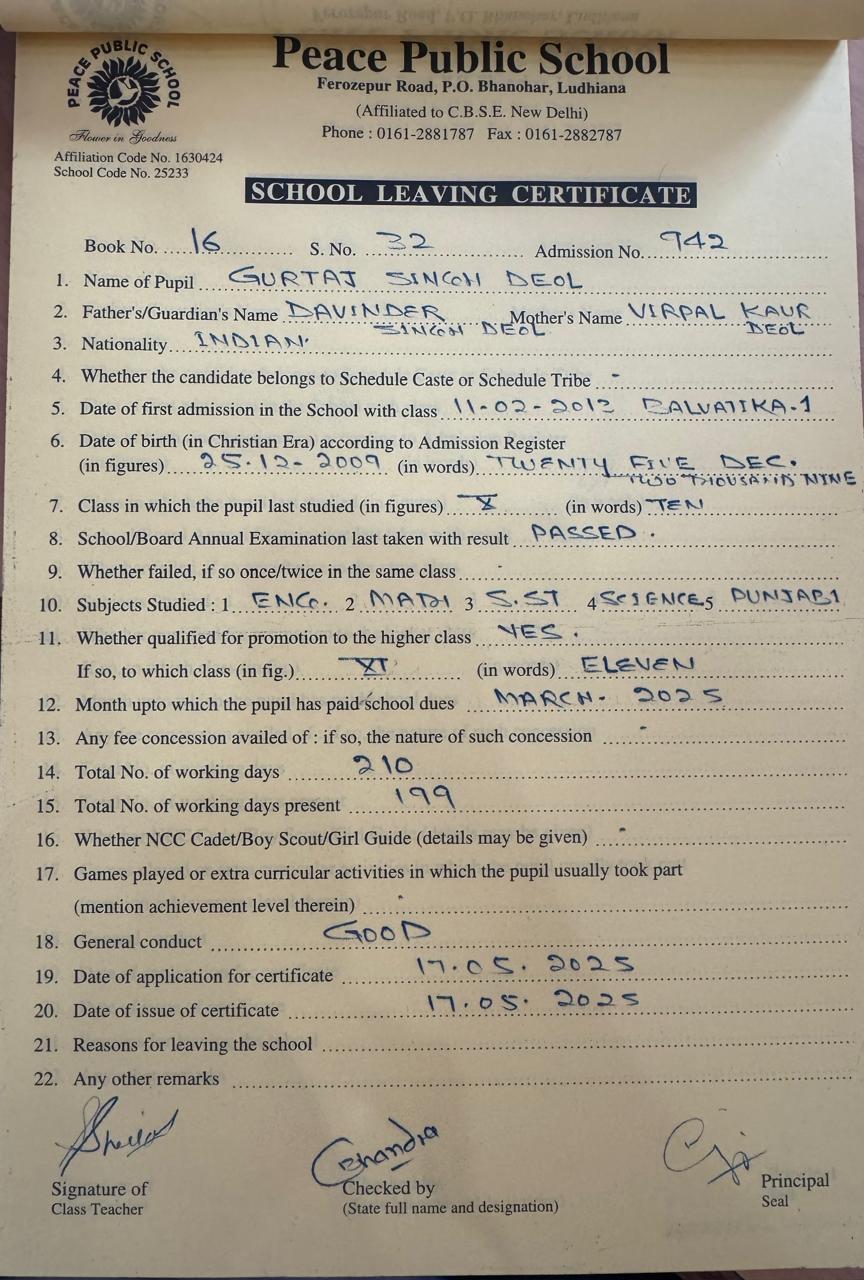 PEACE PUBLIC SCHOOL
Flower in Goodness
Affiliation Code No. 1630424
School Code No. 25233
Peace Public School
Ferozepur Road, P.O. Bhanohar, Ludhiana
(Affiliated to C.B.S.E. New Delhi)
Phone : 0161-2881787 Fax : 0161-2882787
SCHOOL LEAVING CERTIFICATE
Book No. 16 S. No. 32 Admission No. 942
1. Name of Pupil GURTAJ SINGH DEOL
2. Father's/Guardian's Name DAVINDER SINGH DEOL Mother's Name VIRPAL KAUR DEOL
3. Nationality INDIAN
4. Whether the candidate belongs to Schedule Caste or Schedule Tribe -
5. Date of first admission in the School with class 11-02-2013 BALVATIKA-1
6. Date of birth (in Christian Era) according to Admission Register
(in figures) 25-12-2009 (in words) TWENTY FIVE DEC. TWO THOUSAND NINE
7. Class in which the pupil last studied (in figures) X (in words) TEN
8. School/Board Annual Examination last taken with result PASSED.
9. Whether failed, if so once/twice in the same class -
10. Subjects Studied : 1 ENG. 2 MATH 3 S.ST 4 SCIENCE 5 PUNJABI
11. Whether qualified for promotion to the higher class YES.
If so, to which class (in fig.) XI (in words) ELEVEN
12. Month upto which the pupil has paid school dues MARCH- 2025
13. Any fee concession availed of : if so, the nature of such concession -
14. Total No. of working days 210
15. Total No. of working days present 199
16. Whether NCC Cadet/Boy Scout/Girl Guide (details may be given) -
17. Games played or extra curricular activities in which the pupil usually took part
(mention achievement level therein) -
18. General conduct GOOD
19. Date of application for certificate 17.05.2025
20. Date of issue of certificate 17.05.2025
21. Reasons for leaving the school
22. Any other remarks
Signature of
Class Teacher
Checked by
(State full name and designation)
Principal
Seal